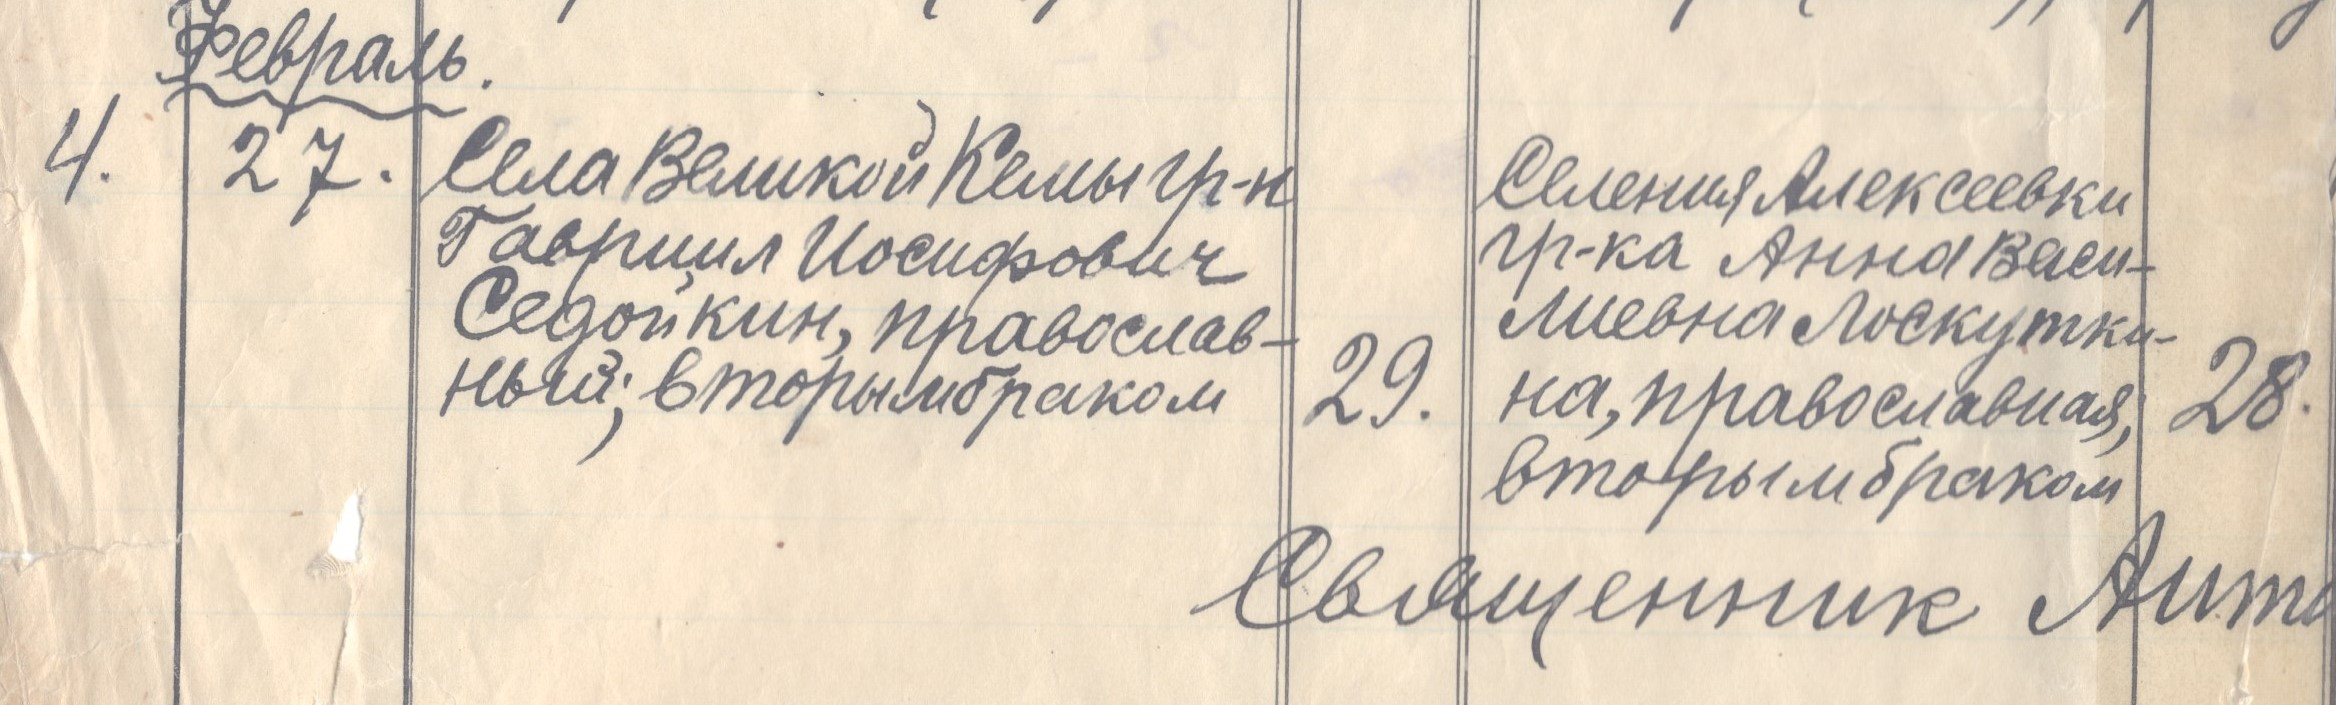 Февраль.
4. 27. Села Великой Кемы гр-н
Гавриил Иосифович
Седойкин, православ-
ный; вторым браком
29.
Селения Алексеевки
гр-ка Анна Васи-
лиевна Лоскутки-
на, православная,
вторым браком
28.
Священник Анто